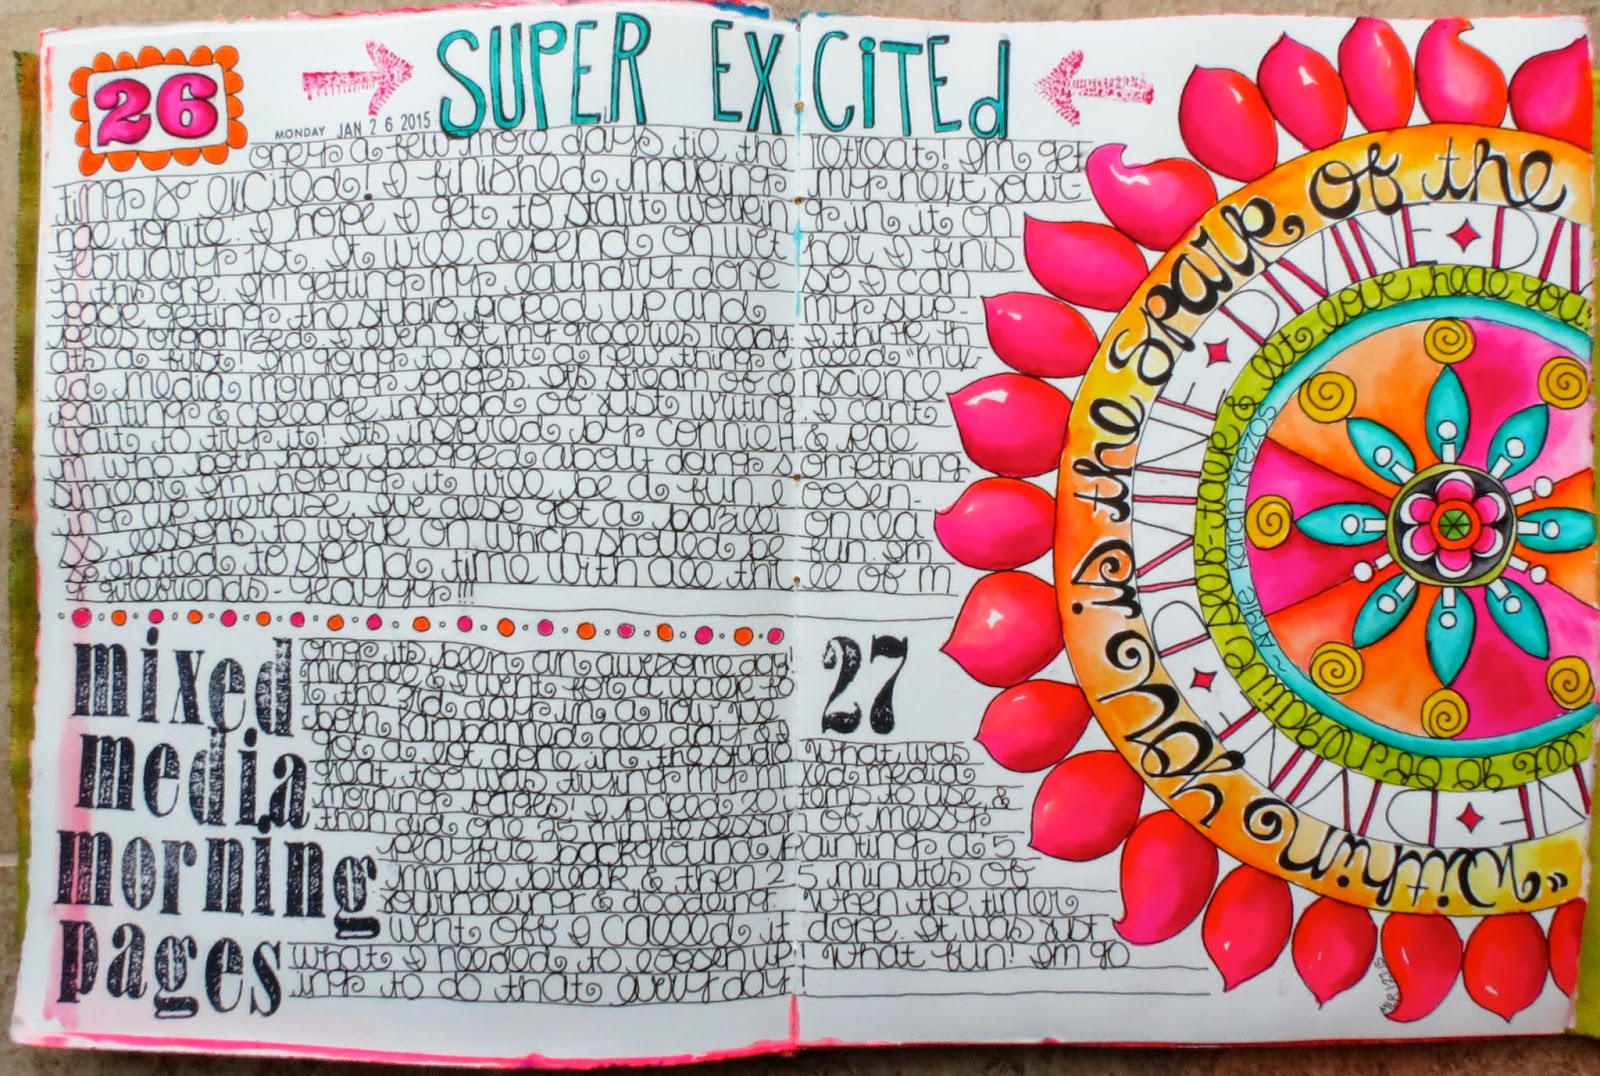 26
SUPER EXCITEd
MONDAY JAN 26 2015
only a few more days til the retreat! Im get
ting so excited! I finished making my next jour-
nal tonite. I hope I get to start working in it on
february 1st. It will depend on wether I finis
h this one. Im getting my laundry done so I can
pack, getting the studio picked up and my sup-
plies organized. I even got my groceries today. I think th
ats a first. Im going to start a new thing called "mix
ed media morning pages. Its stream of conscience
painting & collage instead of just writing. I cant
wait to try it. Its inspired by connie H & rae
m who both have blogged about doing something
similar. Im hoping it will be a fun, loosen-
ing up exercise. Ive also got a bazillion cla
ss lessons to work on which should be fun. Im
so excited to spend time with all three of m
y girlfriends - yayyy!!!
mixed
media
morning
pages
27
omg its been an awesome day!
michole & I went for a walk fo
r the 3rd day in a row. We
both kanbamed all day & I
got a lot done in the studio.
What was
great too was trying my mixed media
morning pages! I picked 20 items to use, &
then did one 25 minute session of messy
playful background painting, a 5
minute break & then 25 minutes of
journaling & doodling. When the timer
went off I called it done. It was just
what I needed to loosen up. What fun! Im go
ing to do that every day!
"Within you is the spark of the
DIVINE DIVINE DIVINE
Let go of derogative self-talk & let love heal you.
~Angie Karai Krezos